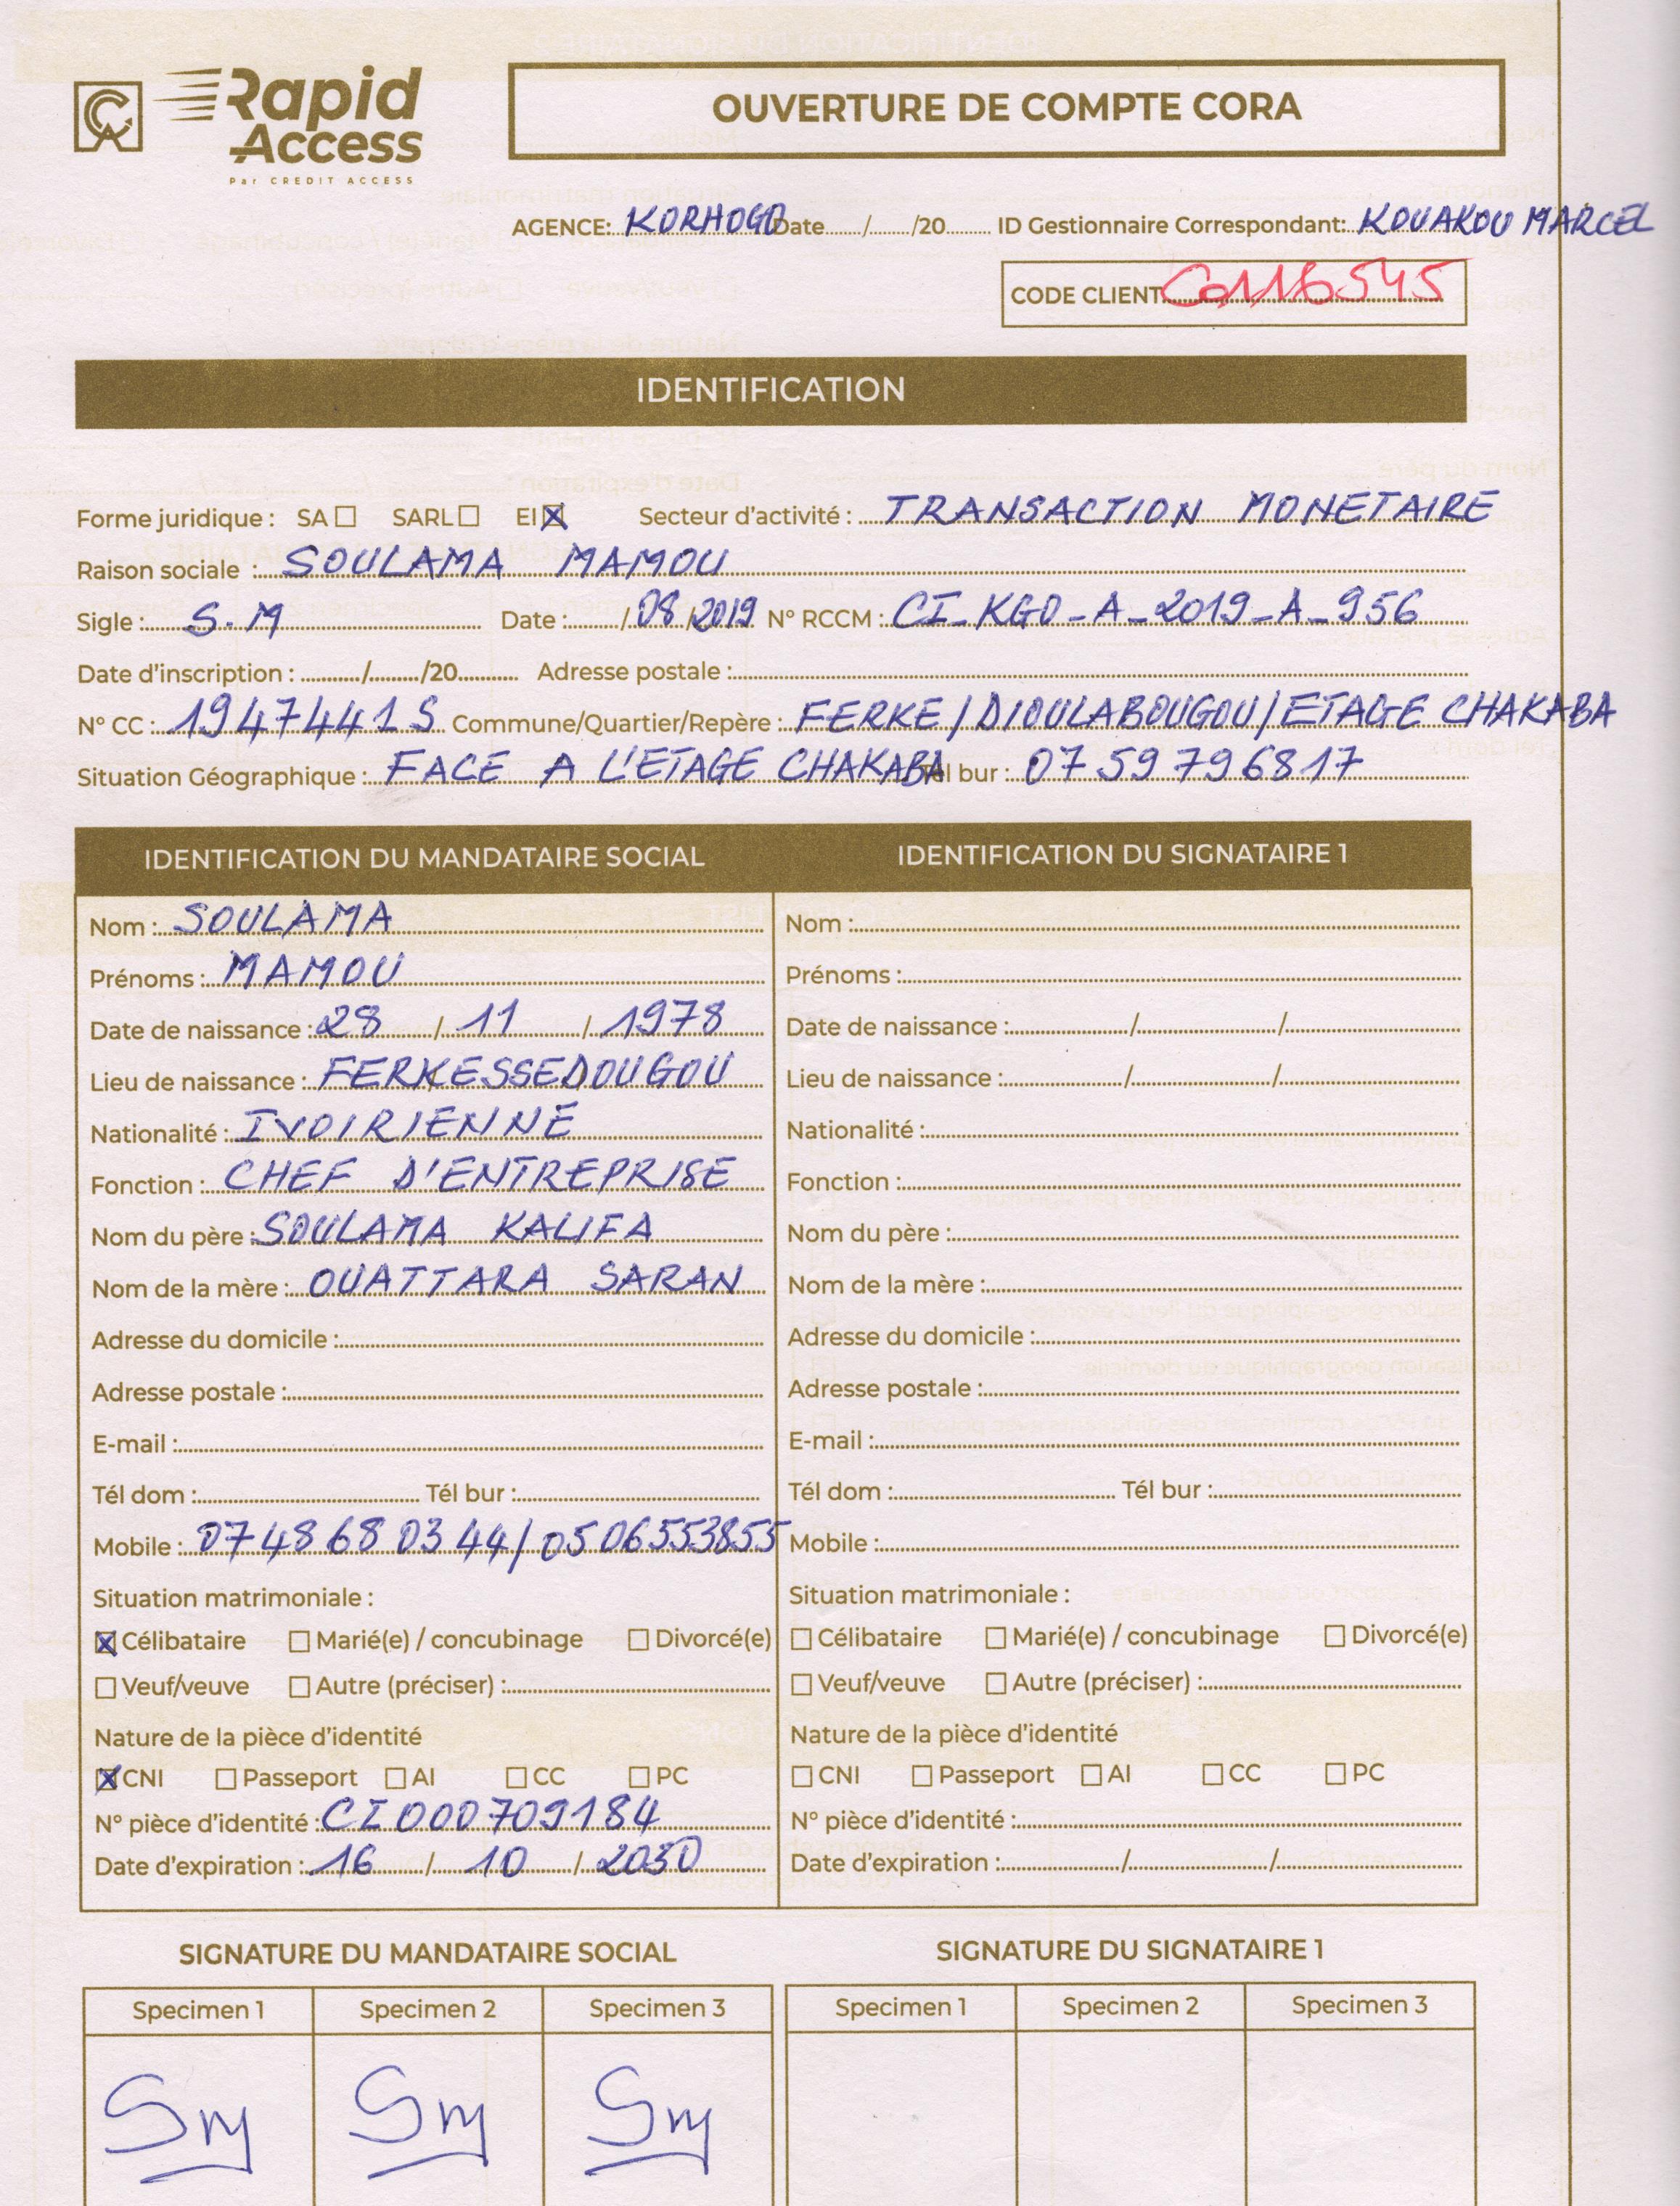 CA Rapid Access
Par CREDIT ACCESS
OUVERTURE DE COMPTE CORA
AGENCE: KORHOGO Date....../....../20...... ID Gestionnaire Correspondant: KOUAKOU MARCEL
CODE CLIENT C0116545
IDENTIFICATION
Forme juridique : SA ☐ SARL ☐ EI ☒ Secteur d'activité : TRANSACTION MONETAIRE
Raison sociale : SOULAMA MAMOU
Sigle : S.M Date : ....../08/2019 N° RCCM : CI_KGO_A_2019_A_956
Date d'inscription : ....../....../20...... Adresse postale :
N° CC : 1947441S Commune/Quartier/Repère : FERKE/DIOULABOUGOU/ETAGE CHAKABA
Situation Géographique : FACE A L'ETAGE CHAKABA Tél bur : 07 59 79 68 17
IDENTIFICATION DU MANDATAIRE SOCIAL
Nom : SOULAMA
Prénoms : MAMOU
Date de naissance : 28 / 11 / 1978
Lieu de naissance : FERKESSEDOUGOU
Nationalité : IVOIRIENNE
Fonction : CHEF D'ENTREPRISE
Nom du père : SOULAMA KALIFA
Nom de la mère : OUATTARA SARAN
Adresse du domicile :
Adresse postale :
E-mail :
Tél dom : Tél bur :
Mobile : 07 48 68 03 44/05 06553855
Situation matrimoniale :
☒ Célibataire ☐ Marié(e) / concubinage ☐ Divorcé(e)
☐ Veuf/veuve ☐ Autre (préciser) :
Nature de la pièce d'identité
☒ CNI ☐ Passeport ☐ AI ☐ CC ☐ PC
N° pièce d'identité : CI000709184
Date d'expiration : 16 / 10 / 2030
IDENTIFICATION DU SIGNATAIRE 1
Nom :
Prénoms :
Date de naissance : / /
Lieu de naissance : / /
Nationalité :
Fonction :
Nom du père :
Nom de la mère :
Adresse du domicile :
Adresse postale :
E-mail :
Tél dom : Tél bur :
Mobile :
Situation matrimoniale :
☐ Célibataire ☐ Marié(e) / concubinage ☐ Divorcé(e)
☐ Veuf/veuve ☐ Autre (préciser) :
Nature de la pièce d'identité
☐ CNI ☐ Passeport ☐ AI ☐ CC ☐ PC
N° pièce d'identité :
Date d'expiration : / /
SIGNATURE DU MANDATAIRE SOCIAL
Specimen 1 Specimen 2 Specimen 3
Sm Sm Sm
SIGNATURE DU SIGNATAIRE 1
Specimen 1 Specimen 2 Specimen 3